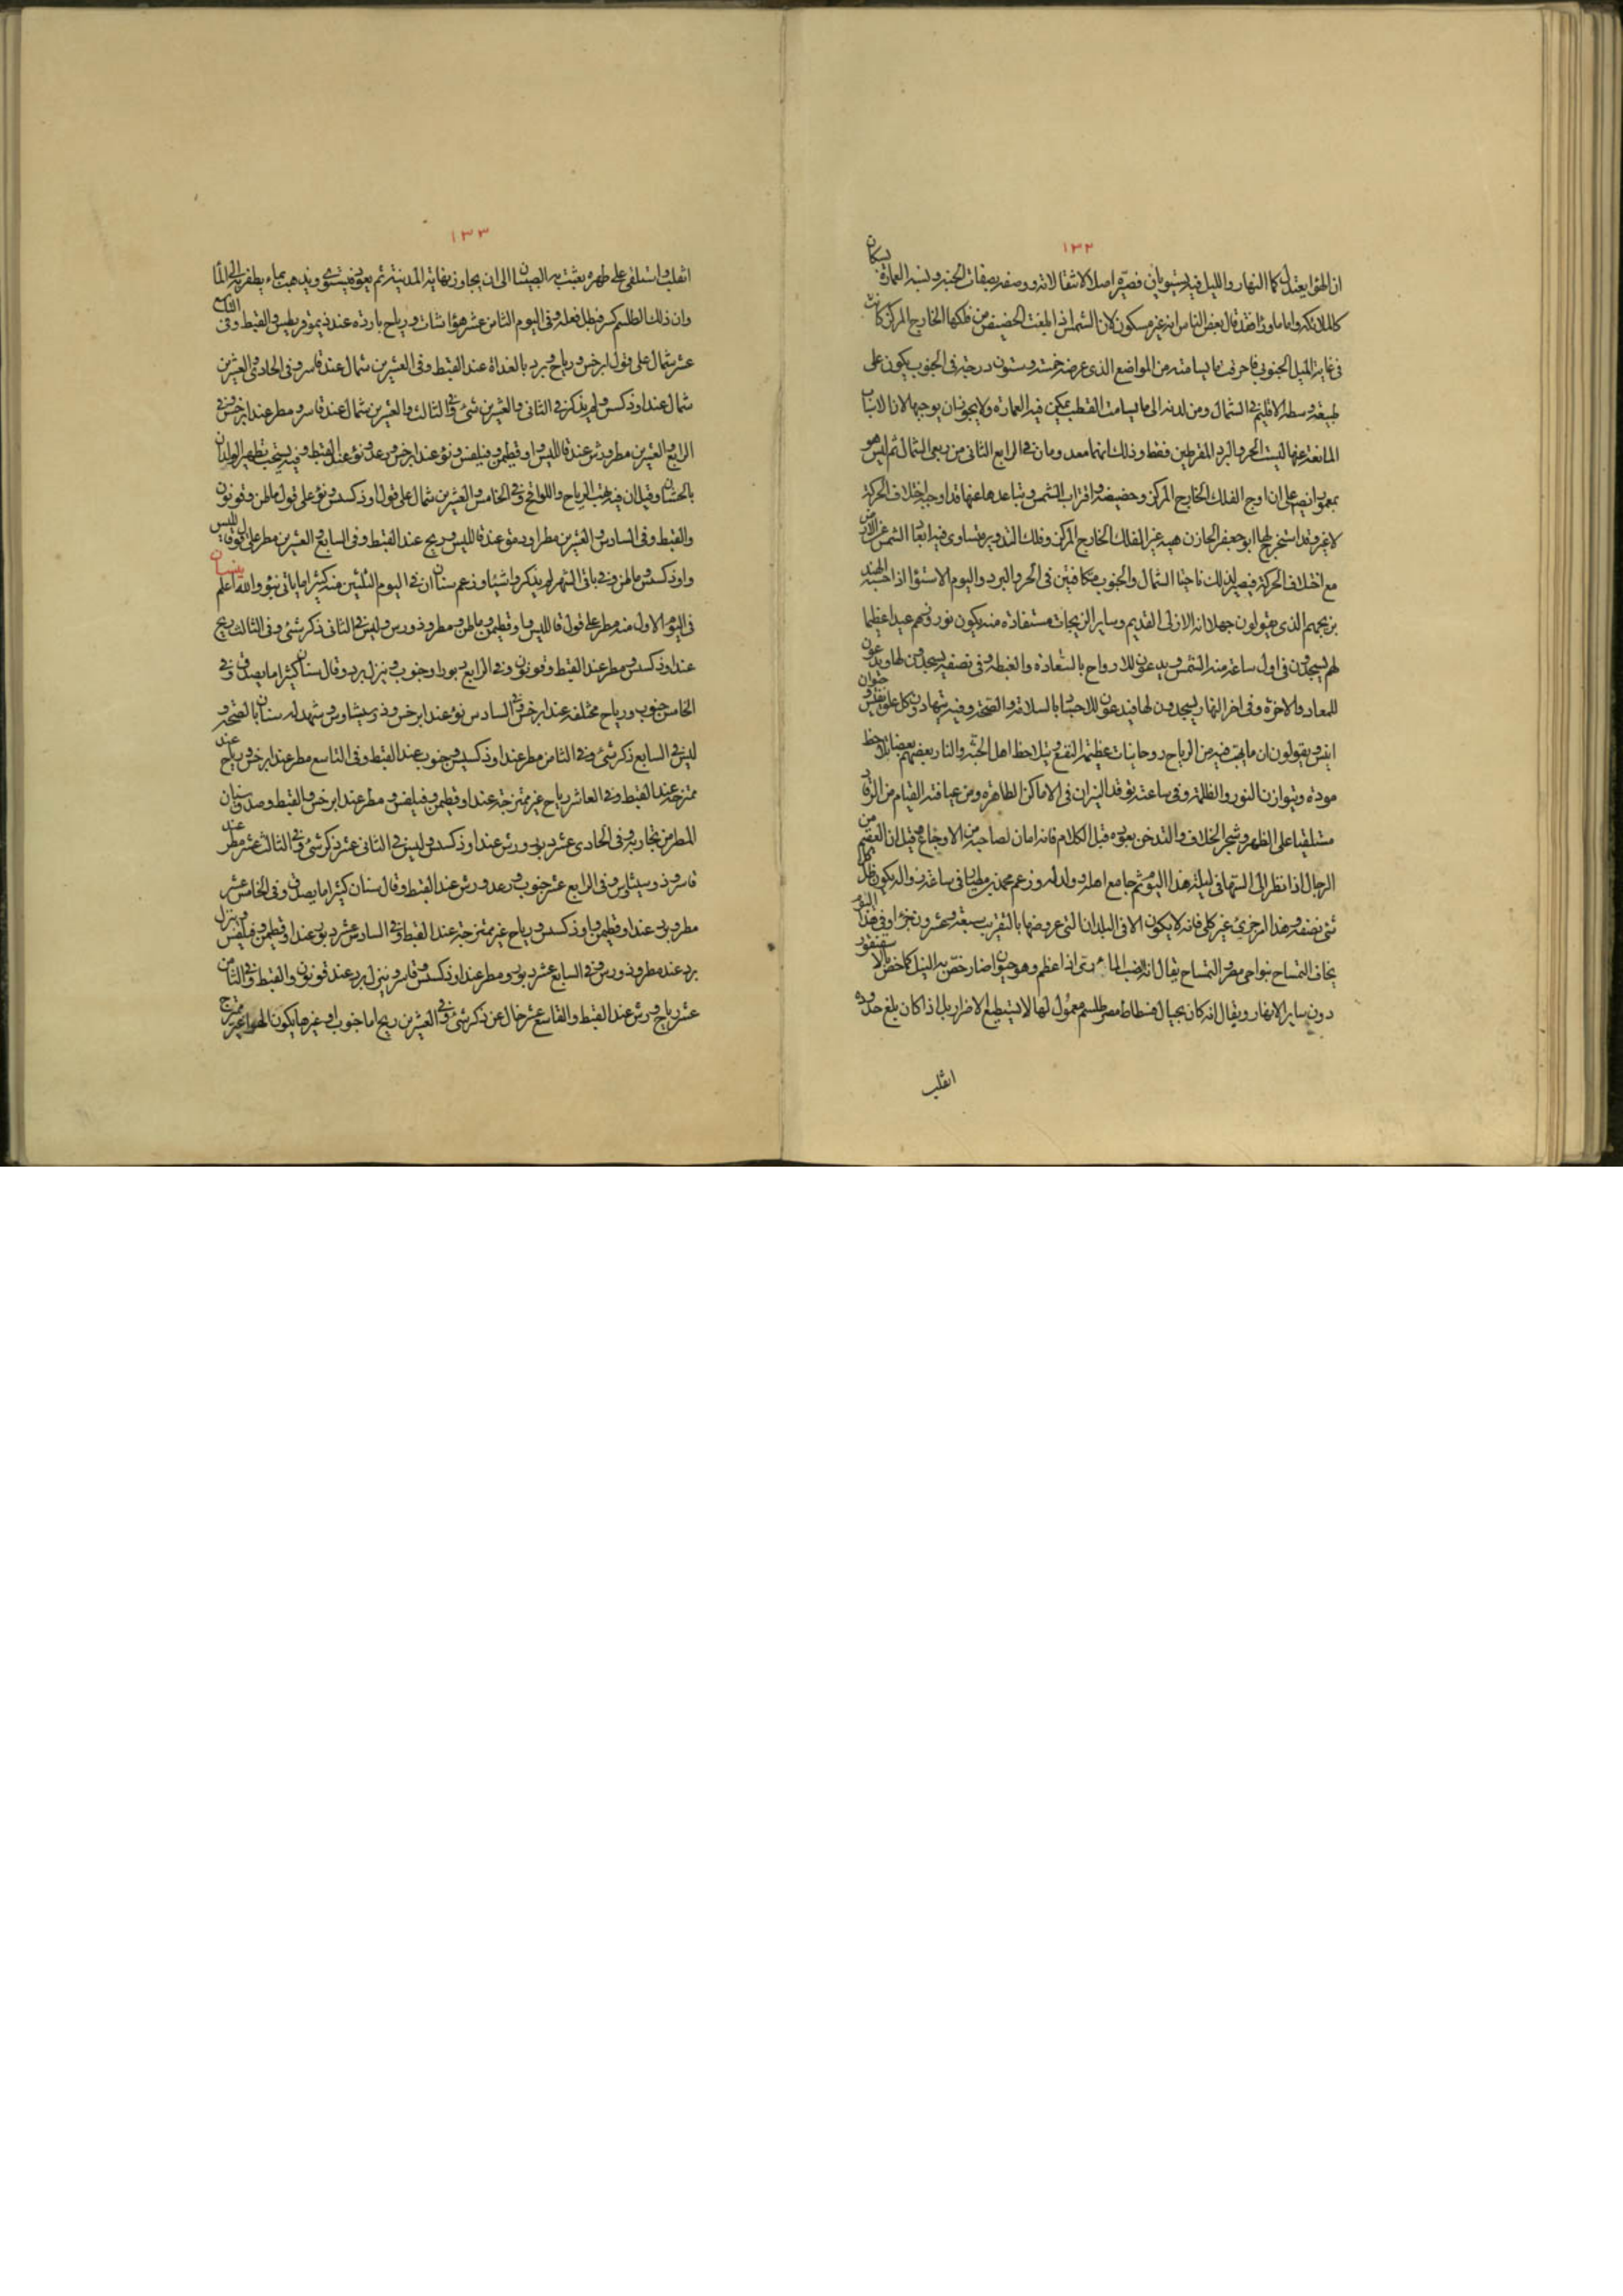 ١٣٢
ان الهوا يعتدل كما النهار والليل فيه يستويان فصيره اصلا لانتقالاته ووصفه بصفات الجنة ونسبه العمارة بسكان
كالملائكة واما ما وراه فقد قال بعض الناس انه غير مسكون لان الشمس اذا بلغت الحضيض من فلكها الخارج المركز كانت
فى غاية الميل الجنوبى فاحرقت ما يسامته من المواضع الذى عرضه خمسة وستون درجة فى الجنوب يكون على
طبيعة وسط الاقليم فى الشمال ومن لدنه الى ما يسامت القطب يمكن فيه العمارة ولا يجوز ان يوجبها لان الاسباب
المانعة عنها ليست الحر والبرد المفرطين فقط وذلك انهما معدومان فى الرابع الثانى من ربعى الشمال ثم ليس هو
بمعمور انص على ان اوج الفلك الخارج المركز وحضيضه واقتراب الشمس وتباعدها عنها قد اوجب اختلاف الحركة
لا غير وقد استخرج لها ابو جعفر الخازن هيئة غير الفلك الخارج المركز وفلك التدوير يتساوى فيه ابعاد الشمس عن الارض
مع اختلاف الحركة فيصير لذلك ناحيتا الشمال والجنوب متكافيتين فى الحر والبرد واليوم الاستوا اذا حسبه الهند
بزيجهم الذى يقولون جهلا انه الازلى القديم وساير الزيجات مستفادة منه يكون نوروزهم عيدا عظيما
لهم يسجدون فى اول ساعة منه للشمس ويدعون للارواح بالسعادة والغبطة وفى نصفه يسجدون لها ويدعون
للمعاد والاخرة وفى اخر النهار يسجدون لها فيدعون للاجساد بالسلامة والصحة وفيه يتهادون كل علق نفيس وحيوان
انيس ويقولون ان ما يهب فيه من الرياح روحانيات عظيمة النفع ويتلاحظ اهل الجنة والنار بعضهم بعضا تلاحظ
مودة ويتوازن النور والظلمة وفى ساعته توقد النيران فى الاماكن الطاهرة ومن عيافته القيام من الرقاد
مستلقيا على الظهر وشجر الخلاف والتدخن بعوده قبل الكلام فانه امان لصاحبه من الاوجاع وقيل ان العقيم من
الرجال اذا نظر الى السها فى ليلة هذا اليوم ثم جامع اهله ولد له وزعم محمد بن مطيار ان فى ساعة زواله يكون ظل كل
شئ نصفه وهذا امر جزئ غير كلى فانه لا يكون الا فى البلدان التى عروضها بالتقريب سبعة وعشرون جزؤا وفى هذا اليوم
يخاف التمساح بنواحى مصر والتمساح يقال انه الضب الماءى اذا عظم وهو حيوان ضار خص به النيل كما خص بالاسقنقور
دون ساير الانهار ويقال انه كان بجبال فسطاط مصر طلسم معمول لها لا يستطيع الاضرار بل اذا كان بلغ حدوده
انقلب
١٣٣
انقلب واستلقى على ظهره يعبث به الصبيان الى ان يجاوز نهاية المدينة ثم يعود فيستوى ويذهب بما يظفر به الى الماء
وان ذلك الطلسم كسر فبطل فعله وفى اليوم الثامن عشر هواشات ورياح بارده عند ذيموقريطس والقبط وفى التاسع
عشر شمال على قول ابرخس ورياح وبرد بالغداة عند القبط وفى العشرين شمال عند قاسر وفى الحادى والعشرين
شمال عند اوذكسس ولم يذكر فى الثانى والعشرين شئ وفى الثالث والعشرين شمال عند قاسر ومطر عند ابرخس وفى
الرابع والعشرين مطر ورش عند قالليبس واوقطيمن وفيلفس ونوء عند ابرخس ورعد ونوء عند القبط وفيه يستحب تطهير الولدان
بالختان وقيل ان فيه تهب الرياح واللواقح وفى الخامس والعشرين شمال على قول اوذكسس ونوء على قول ماطن وقونون
والقبط وفى السادس والعشرين مطر او دمق عند قالليبس وريح عند القبط وفى السابع والعشرين مطر على قول قالليبس
واوذكسس وماطن وفى باقى الشهر لم يذكروا شيئا وزعم سنان ان فى اليوم الثلثين منه كثيرا ما ياتى بنؤ والله اعلم
نيسان
فى اليوم الاول منه مطر على قول قالليبس واوقطيمن وماطن ومطروذورس وليس فى الثانى ذكر شئ وفى الثالث ريح
عند اوذكسس ومطر عند القبط وقونون وفى الرابع دبور او جنوب وينزل برد وقال سنان كثيرا ما يصدق وفى
الخامس جنوب ورياح مختلفة عند ابرخس وفى السادس نوء عند ابرخس وذوسيثاوس وشهد له سنان بالصحة و
ليس فى السابع ذكر شئ وفى الثامن مطر عند اوذكسس وجنوب عند القبط وفى التاسع مطر عند ابرخس ورياح عند
ممتزجة عند القبط وفى العاشر رياح غير ممتزجة عند اوقطيمن وفيلفس ومطر عند ابرخس والقبط وصدق سنان
المطر من تجاربه وفى الحادى عشر دبور ورش عند اوذكسس وليس فى الثانى عشر ذكر شئ وفى الثالث عشر مطر عند
قاسر وذوسيثاوس وفى الرابع عشر جنوب ورعد ورش عند القبط وقال سنان كثيرا ما يصدق وفى الخامس عشر
مطر وبرد عند اوقطيمن واوذكسس ورياح غير ممتزجة عند القبط وفى السادس عشر دبور عند اوقطيمن وفيلفس وينزل
برد عند مطروذورس وفى السابع عشر دبور ومطر عند اوذكسس وقاسر وينزل برد عند قونون والقبط وفى الثامن
عشر رياح ورش عند القبط والتاسع عشر خال عن ذكر شئ وفى العشرين ريح اما جنوب او غيرها يكون الهواء غير ممتزج